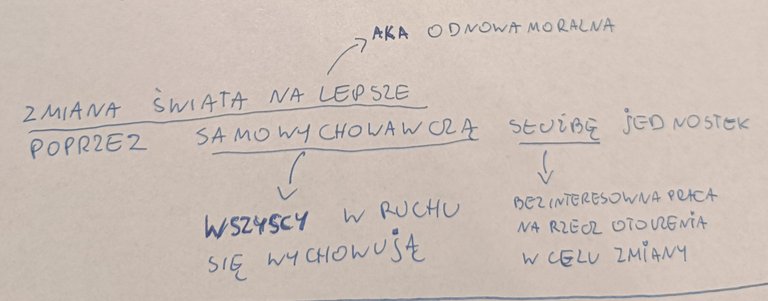 AKA ODNOWA MORALNA
ZMIANA ŚWIATA NA LEPSZE
POPRZEZ SAMOWYCHOWAWCZĄ SŁUŻBĘ JEDNOSTEK
WSZYSCY W RUCHU
SIĘ WYCHOWUJĄ
BEZINTERESOWNA PRACA
NA RZECZ OTOCZENIA
W CELU ZMIANY